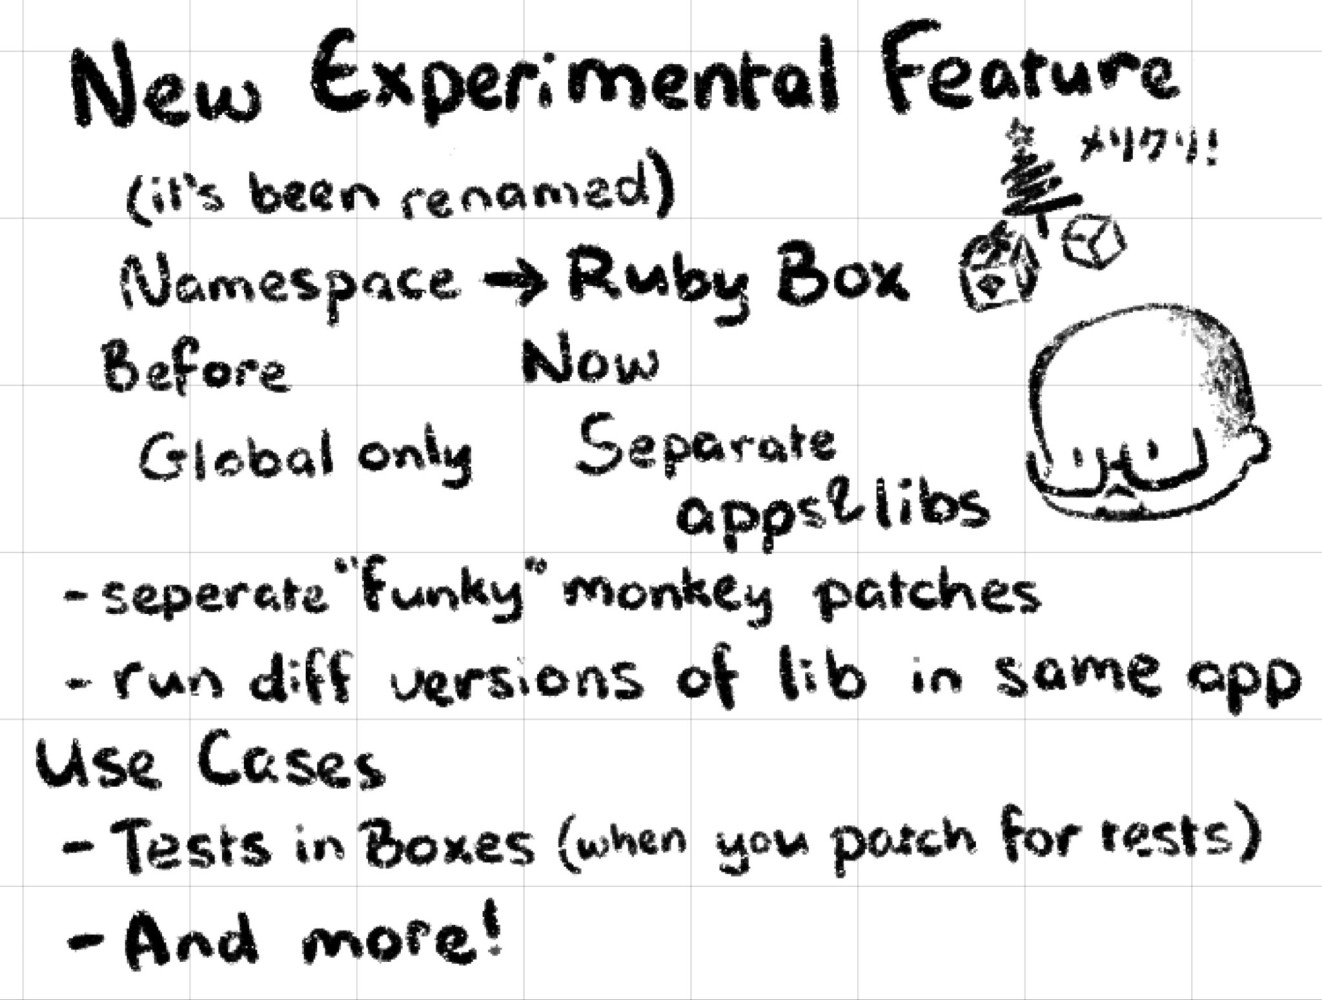 New Experimental Feature
メリクリ!
(it's been renamed)
Namespace → Ruby Box
Before Now
Global only Separate
apps&libs
- seperate "funky" monkey patches
- run diff versions of lib in same app
Use Cases
- Tests in Boxes (when you patch for tests)
- And more!